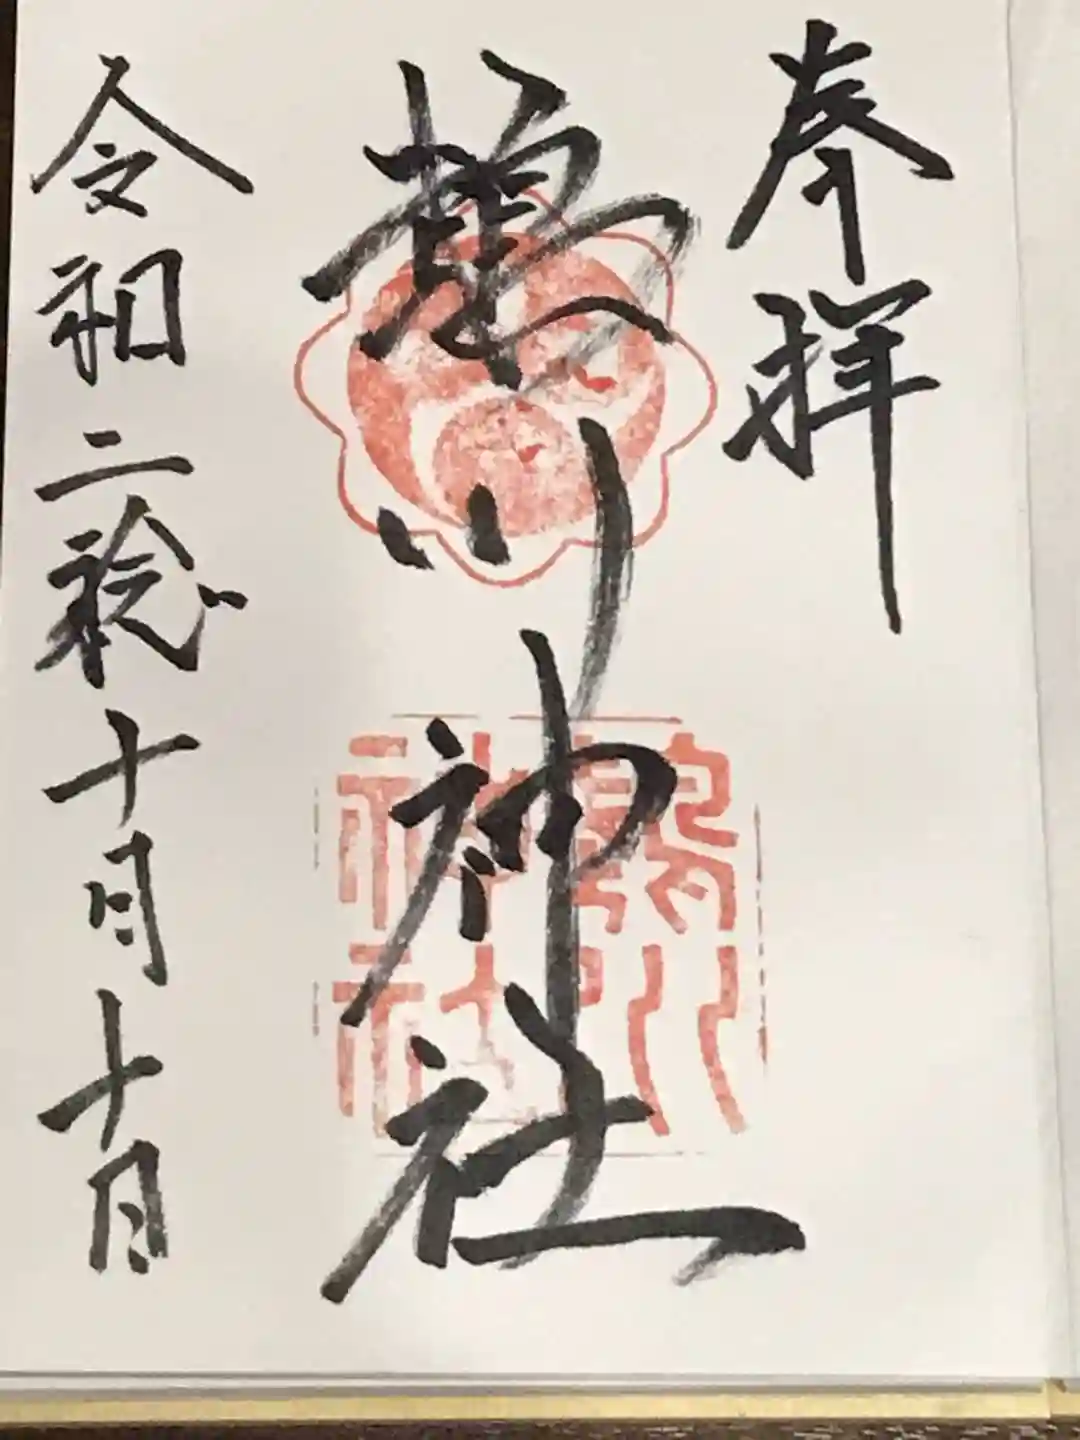 奉拝
川神社
令和二稔十月十日
川
神社